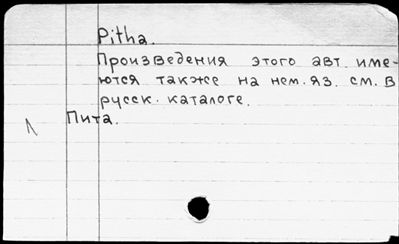 Pitha.
Произведения этого авт. име-
ются также на нем. яз. см. в
русск. каталоге.
Пита.